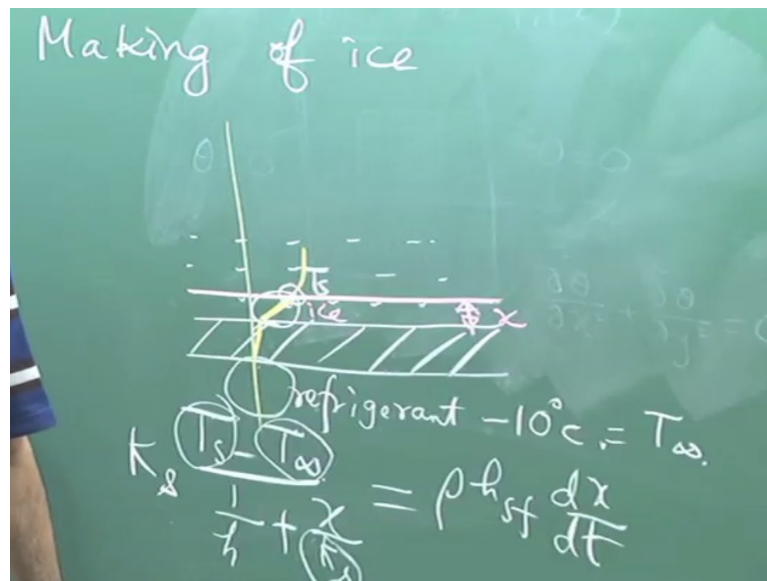 Making of ice
Ts
ice
x
refrigerant -10°c. = T∞.
Ks
Ts - T∞
1/h + x/ks = ρ hsf dx/dt